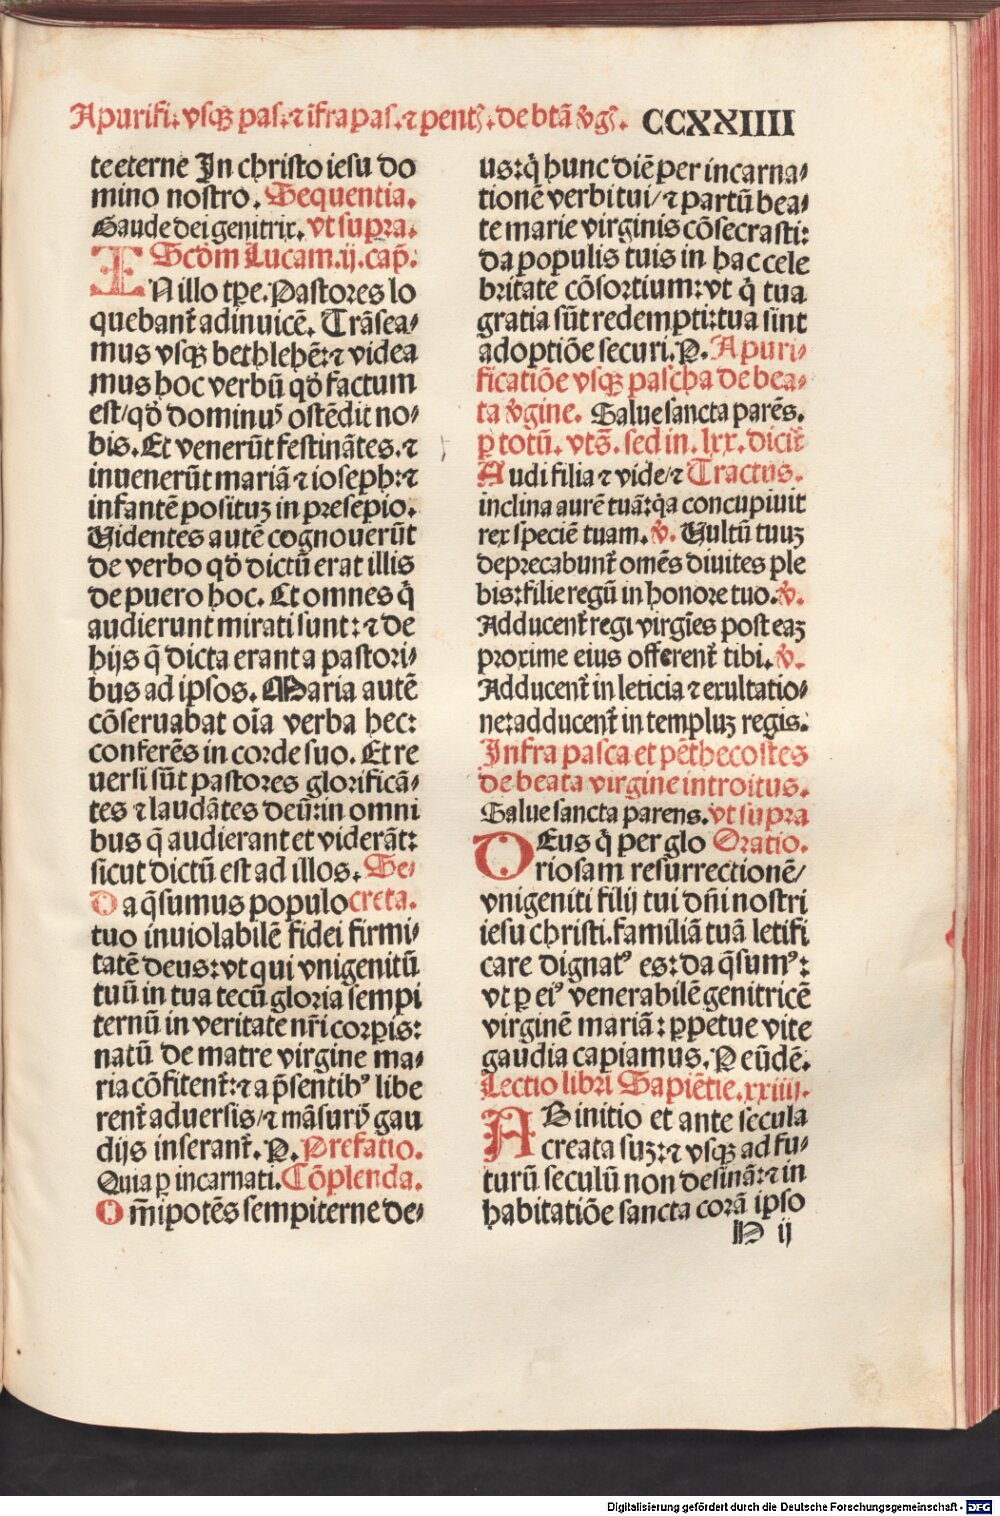 A purifi: vsqꝫ pas: ⁊ ĩfra pas. ⁊ pent᷒. de btã v̓g᷒. CCXXIIII
te eterne In christo iesu do
mino nostro. Sequentia.
Gaude dei genitrix. vt supra.
Scd̕m Lucam. ij. cap̃.
IN illo tp̃e. Pastores lo
quebant᷑ adinuicẽ. Trãsea⸗
mus vsqꝫ bethlehẽ: ⁊ videa
mus hoc verbũ qd̕ factum
est/ qd̕ dominu᷒ ostẽdit no⸗
bis. Et venerũt festinãtes. ⁊
inuenerũt mariã ⁊ ioseph: ⁊
infantẽ posituꝫ in presepio.
Uidentes autẽ cognouerũt
de verbo qd̕ dictũ erat illis
de puero hoc. Et omnes q̇
audierunt mirati sunt: ⁊ de
hijs q̃ dicta erant a pastori⸗
bus ad ipsos. Maria autẽ
cõseruabat oĩa verba hec:
conferẽs in corde suo. Et re
uersi sũt pastores glorificã⸗
tes ⁊ laudãtes deũ: in omni
bus q̃ audierant et viderãt:
sicut dictũ est ad illos. Se⸗
Da q̃sumus populo creta.
tuo inuiolabilẽ fidei firmi⸗
tatẽ deus: vt qui vnigenitũ
tuũ in tua tecũ gloria sempi
ternũ in veritate nr̃i corpis:
natũ de matre virgine ma⸗
ria cõfitent᷑: ⁊ a p̃sentib᷒ libe
rent᷑ aduersis/ ⁊ mãsurῡ gau
dijs inserant᷑. P. Prefatio.
Quia ꝑ incarnati. Cõplenda.
Om̃ipotẽs sempiterne de⸗
us: q̇ hunc diẽ per incarna⸗
tionẽ verbi tui/ ⁊ partũ bea⸗
te marie virginis cõsecrasti:
da populis tuis in hac cele
britate cõsortium: vt q̇ tua
gratia sũt redempti: tua sint
adoptiõe securi. P. A puri⸗
ficatiõe vsqꝫ pascha de bea⸗
ta v̓gine. Salue sancta parẽs.
ꝑ totũ. vts̃. sed in. lxx. dicit᷑
Audi filia ⁊ vide/ ⁊ Tractus.
inclina aurẽ tuã: q̇a concupiuit
rex speciẽ tuam. ℣. Uultũ tuuꝫ
deprecabunt᷑ omẽs diuites ple
bis: filie regũ in honore tuo. ℣.
Adducent᷑ regi virgĩes post eaꝫ
proxime eius offerent᷑ tibi. ℣.
Adducent᷑ in leticia ⁊ exultatio⸗
ne: adducent᷑ in templuꝫ regis.
Infra pasca et pẽthecostes
de beata virgine introitus.
Salue sancta parens. vt supra
DEus q̇ per glo Oratio.
riosam resurrectionẽ/
vnigeniti filij tui dñi nostri
iesu christi. familiã tuã letifi
care dignat᷒ es: da q̃sum᷒:
vt ꝑ ei᷒ venerabilẽ genitricẽ
virginẽ mariã: ꝑpetue vite
gaudia capiamus. P eũdẽ.
Lectio libri Sapiẽtie. xxiiij.
AB initio et ante secula
creata suꝫ: ⁊ vsqꝫ ad fu⸗
turũ seculũ non desinã: ⁊ in
habitatiõe sancta corã ipso
N ij
Digitalisierung gefördert durch die Deutsche Forschungsgemeinschaft - DFG